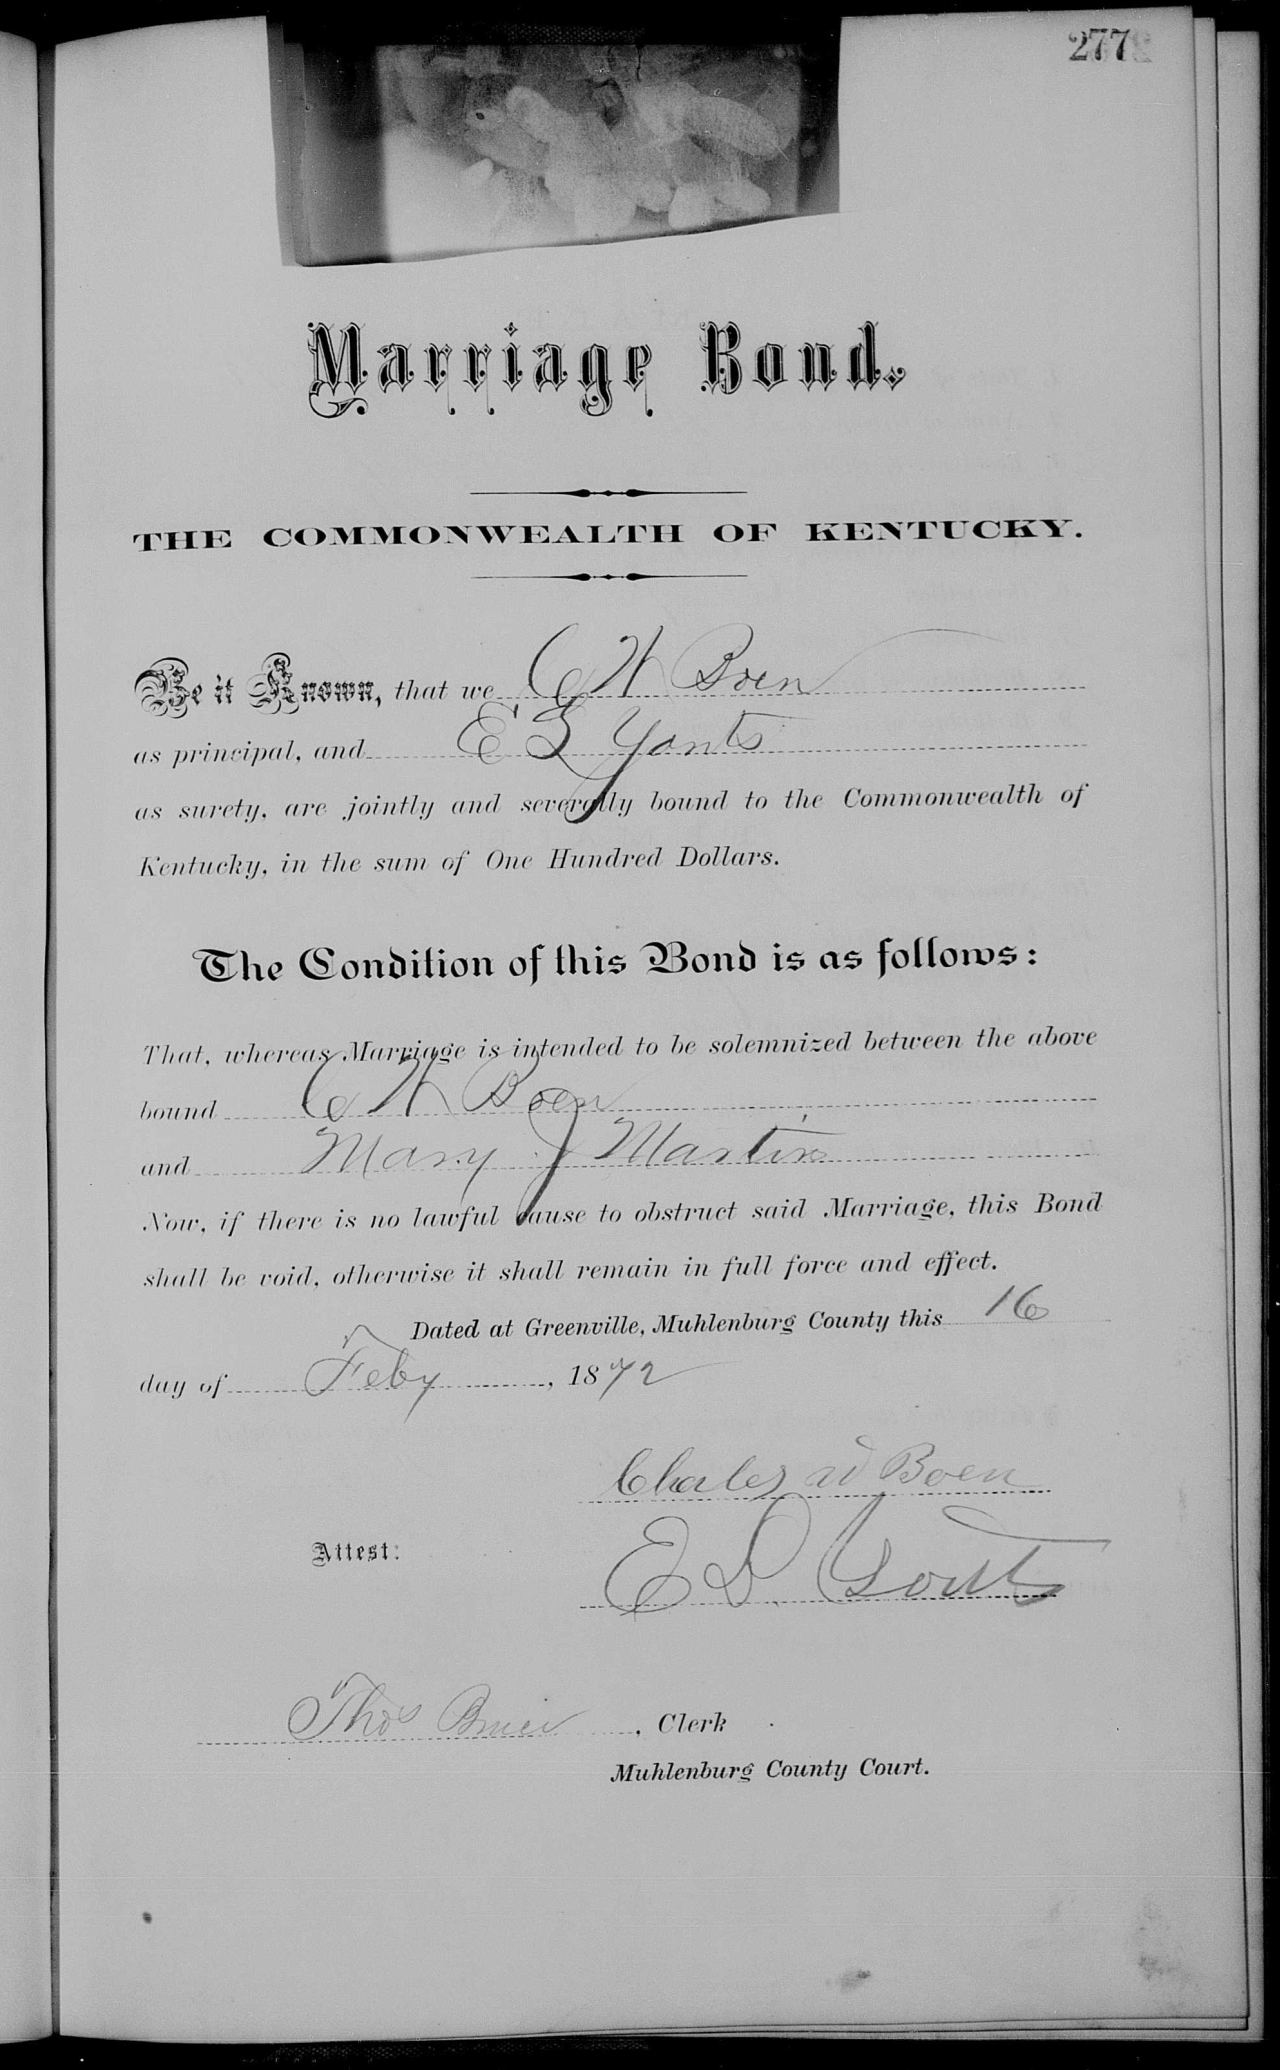 277
Marriage Bond.
THE COMMONWEALTH OF KENTUCKY.
Be it Known, that we C W Boen
as principal, and E S Yonts
as surety, are jointly and severally bound to the Commonwealth of
Kentucky, in the sum of One Hundred Dollars.
The Condition of this Bond is as follows:
That, whereas Marriage is intended to be solemnized between the above
bound C W Boen
and Mary J Martin
Now, if there is no lawful cause to obstruct said Marriage, this Bond
shall be void, otherwise it shall remain in full force and effect.
Dated at Greenville, Muhlenburg County this 16
day of Feby, 1872
Charles W Boen
Attest:
E Yonts
Thos Bruce, Clerk
Muhlenburg County Court.